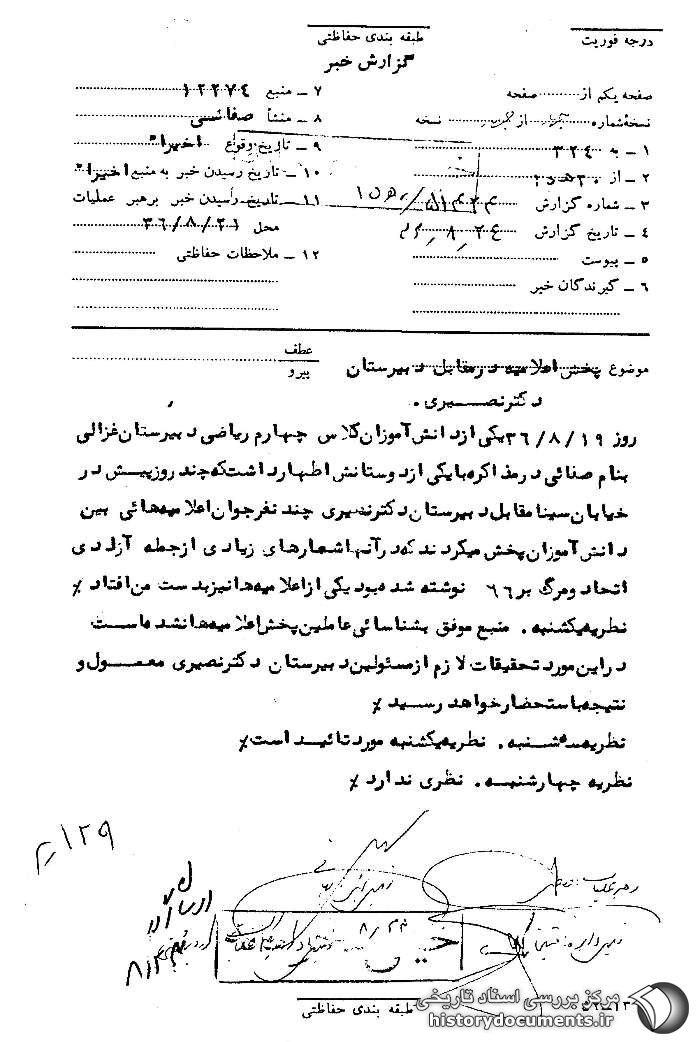 درجه فوریت
طبقه بندی حفاظتی
گزارش خبر
صفحه یکم از صفحه
نسخهٔ شماره از نسخه
۱ – به ۳۲۴
۲ – از
۳ – شماره گزارش
۴ – تاریخ گزارش
۵ – پیوست
۶ – گیرندگان خبر
۷ – منبع ۱۲۲۷۴
۸ – منشأ صفائی
۹ – تاریخ وقوع اخیرا"
۱۰ – تاریخ رسیدن خبر به منبع اخیرا"
۱۱ – تاریخ رسیدن خبر برهبر عملیات
محل ۳۶/۸/۲۱
۱۲ – ملاحظات حفاظتی
موضوع پخش اعلامیه در مقابل دبیرستان
دکتر نصیری.
عطف
پیرو
روز ۳۶/۸/۱۹ یکی از دانش آموزان کلاس چهارم ریاضی دبیرستان غزالی
بنام صفائی در مذاکره با یکی از دوستانش اظهار داشت که چند روز پیش در
خیابان سینا مقابل دبیرستان دکتر نصیری چند نفر جوان اعلامیه هائی بین
دانش آموزان پخش میکردند که در آنها شعارهای زیادی از جمله آزادی
اتحاد و مرگ بر ۶۶ نوشته شده بود یکی از اعلامیه ها نیز بدست من افتاد ٪
نظریه یکشنبه. منبع موفق بشناسائی عاملین پخش اعلامیه ها نشده است
در این مورد تحقیقات لازم از مسئولین دبیرستان دکتر نصیری معمول و
نتیجه باستحضار خواهد رسید ٪
نظریه سه شنبه. نظریه یکشنبه مورد تائید است ٪
نظریه چهارشنبه. نظری ندارد ٪
۱۲۹
رهبر عملیات
۸/۲۳
طبقه بندی حفاظتی
مرکز بررسی اسناد تاریخی
historydocuments.ir